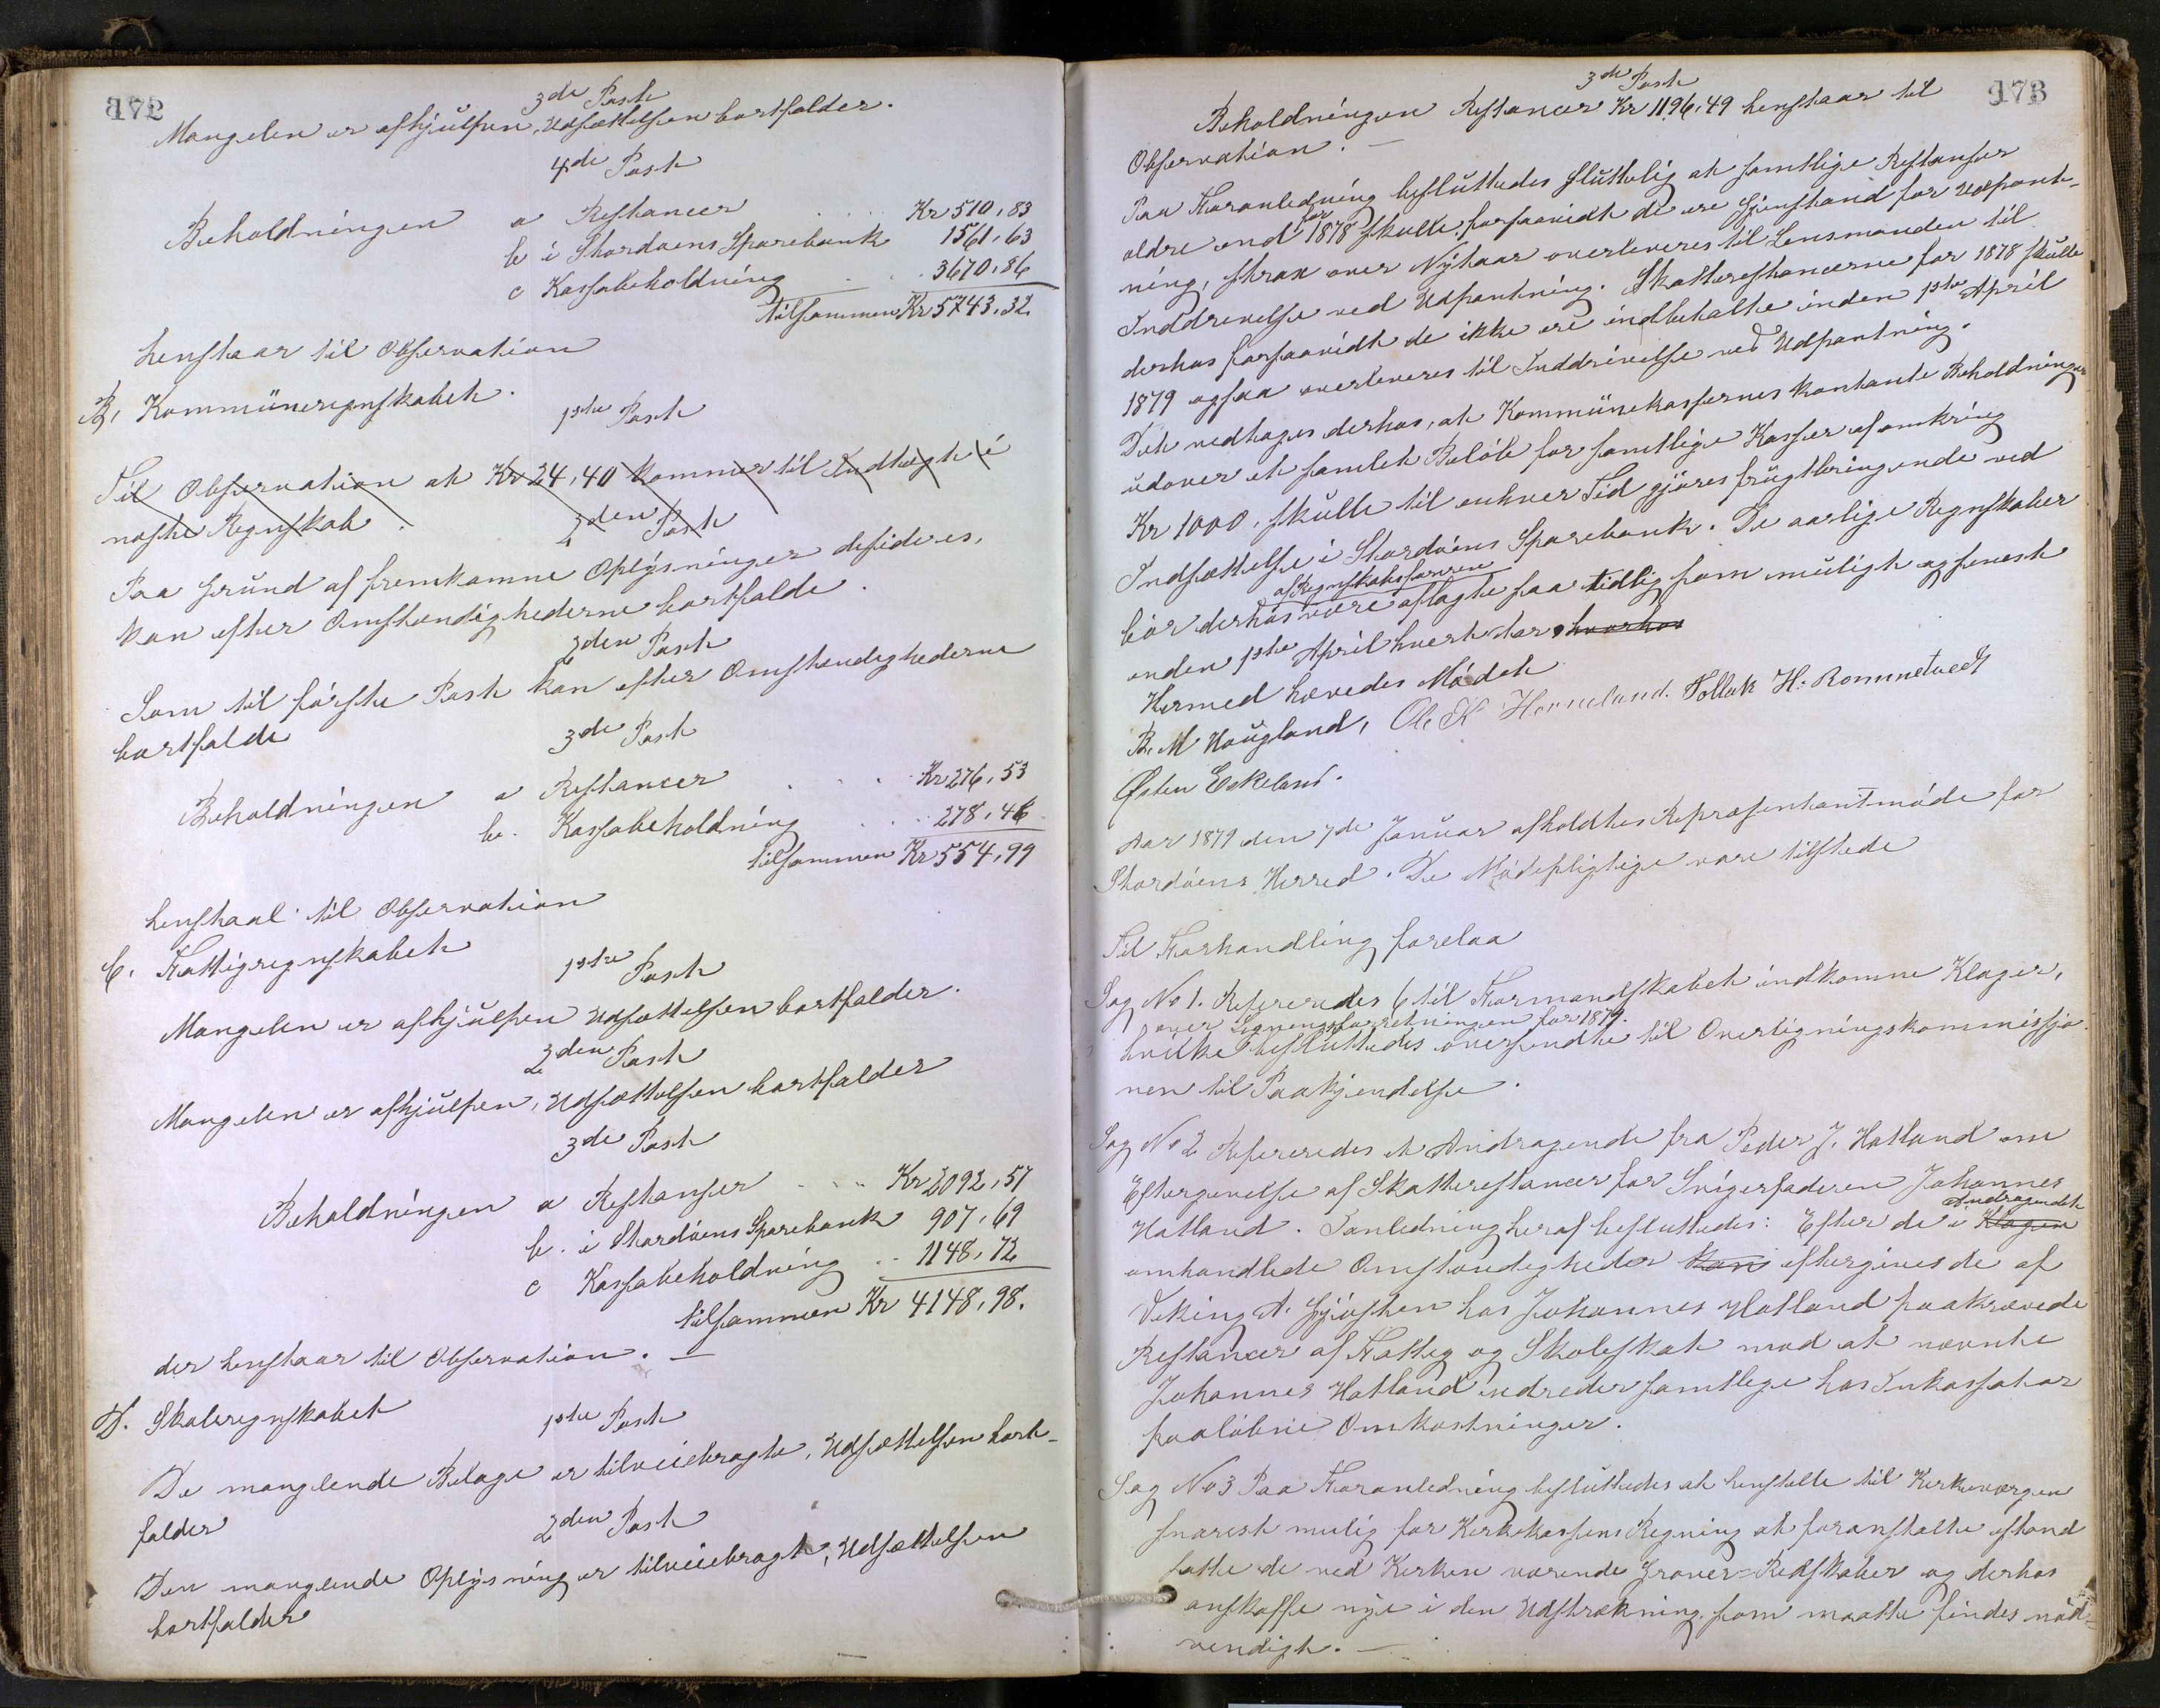 172
3de Post
Mangelen er afhjulpen, Udsættelsen bortfalder.
4de Post
Beholdningen a Restancer Kr 510,83
b i Stordøens Sparebank 1561,63
c Kassabeholdning 3670,86
tilsammen Kr 5743,32
henstaar til Observation
B, Kommuneregnskabet.
1ste Post
Til Observation at Kr 24,40 kommer til Indtægt i
næste Regnskab.
2den Post
Paa Grund af fremkomne Oplysninger desideres,
kan efter Omstændighederne bortfalde.
2den Post
Som til første Post kan efter Omstændighederne
bortfalde
3de Post
Beholdningen a Restancer Kr 276,53
b. Kassabeholdning 278,46
tilsammen Kr 554,99
henstaal til Observation
C. Fattigregnskabet
1ste Post
Mangelen er afhjulpen Udsættelsen bortfalder.
2den Post
Mangelen er afhjulpen, Udsættelsen bortfalder
3de Post
Beholdningen a Restanser Kr 2092,57
b. i Stordøens Sparebank 907,69
c Kassabeholdning 1148,72
tilsammen Kr 4148,98.
der henstaar til Observation. —
D. Skoleregnskabet
1ste Post
De manglende Bilage er tilveiebragte, Udsættelsen bort-
falder
2den Post
Den manglende Oplysning er tilveiebragt, Udsættelsen
bortfalder
173
3de Post
Beholdningen Restancer Kr 1196,49 henstaar til
Observation. —
Paa Foranledning besluttedes sluttelig at samtlige Restanser
ældre end for 1878 skulle, forsaavidt de ere Gjenstand for Udpant-
ning, strax over Nytaar overleveres til Lensmanden til
Inddrivelse ved Udpantning. Skatterestancerne for 1878 skulle
derhos forsaavidt de ikke ere indbetalte inden 1ste April
1879 ogsaa overleveres til Inddrivelse ved Udpantning.
Det vedtages derhos, at Kommunekassernes kontante Beholdninger
udover et samlet Beløb for samtlige Kasser af omkring
Kr 1000, skulle til enhver Tid gjøres frugtbringende ved
Indsættelse i Stordøens Sparebank. De aarlige Regnskaber
af Regnskabsføreren
bør derhos være aflagte saa tidlig som muligt og senest
inden 1ste April hvert Aar, hvorhos
Hermed hævedes Mødet
B. M Haugland, Ole K Horneland. Tollak H: Rommetvedt
Østen Eskeland.
Aar 1879 den 7de Januar afholdtes Repræsentantmøde for
Stordøens Herred. De Mødepligtige vare tilstede
Til Forhandling forelaa
Sag No 1. Refereredes 6 til Formandskabet indkomne Klager,
over Ligningsforretningen for 1879.
hvilke besluttedes oversendte til Overligningskommissjo
nen til Paakjendelse.
Sag No 2 Refereredes et Andragende fra Peder J. Hatland om
Eftergivelse af Skatterestancer for Svigerfaderen Johannes
Andragendet
Hatland. I Anledning heraf besluttedes: Efter de i Klagen
omhandlede Omstændigheder kan eftergives de af
Viking A. hos Johannes Hatland paakrævede
Restancer af Fattig og Skoleskat mod at nævnte
Johannes Hatland udreder samtlige hos Inkassator
paaløbne Omkostninger.
Sag No 3 Paa Foranledning besluttedes at henstille til Kirkeværgen
snarest mulig for Kirkekassens Regning at foranstalte istand
satte de ved Kirken værende Graver-Redskaber og derhos
anskaffe nye i den Udstrækning som maatte findes nød-
vendigt. —